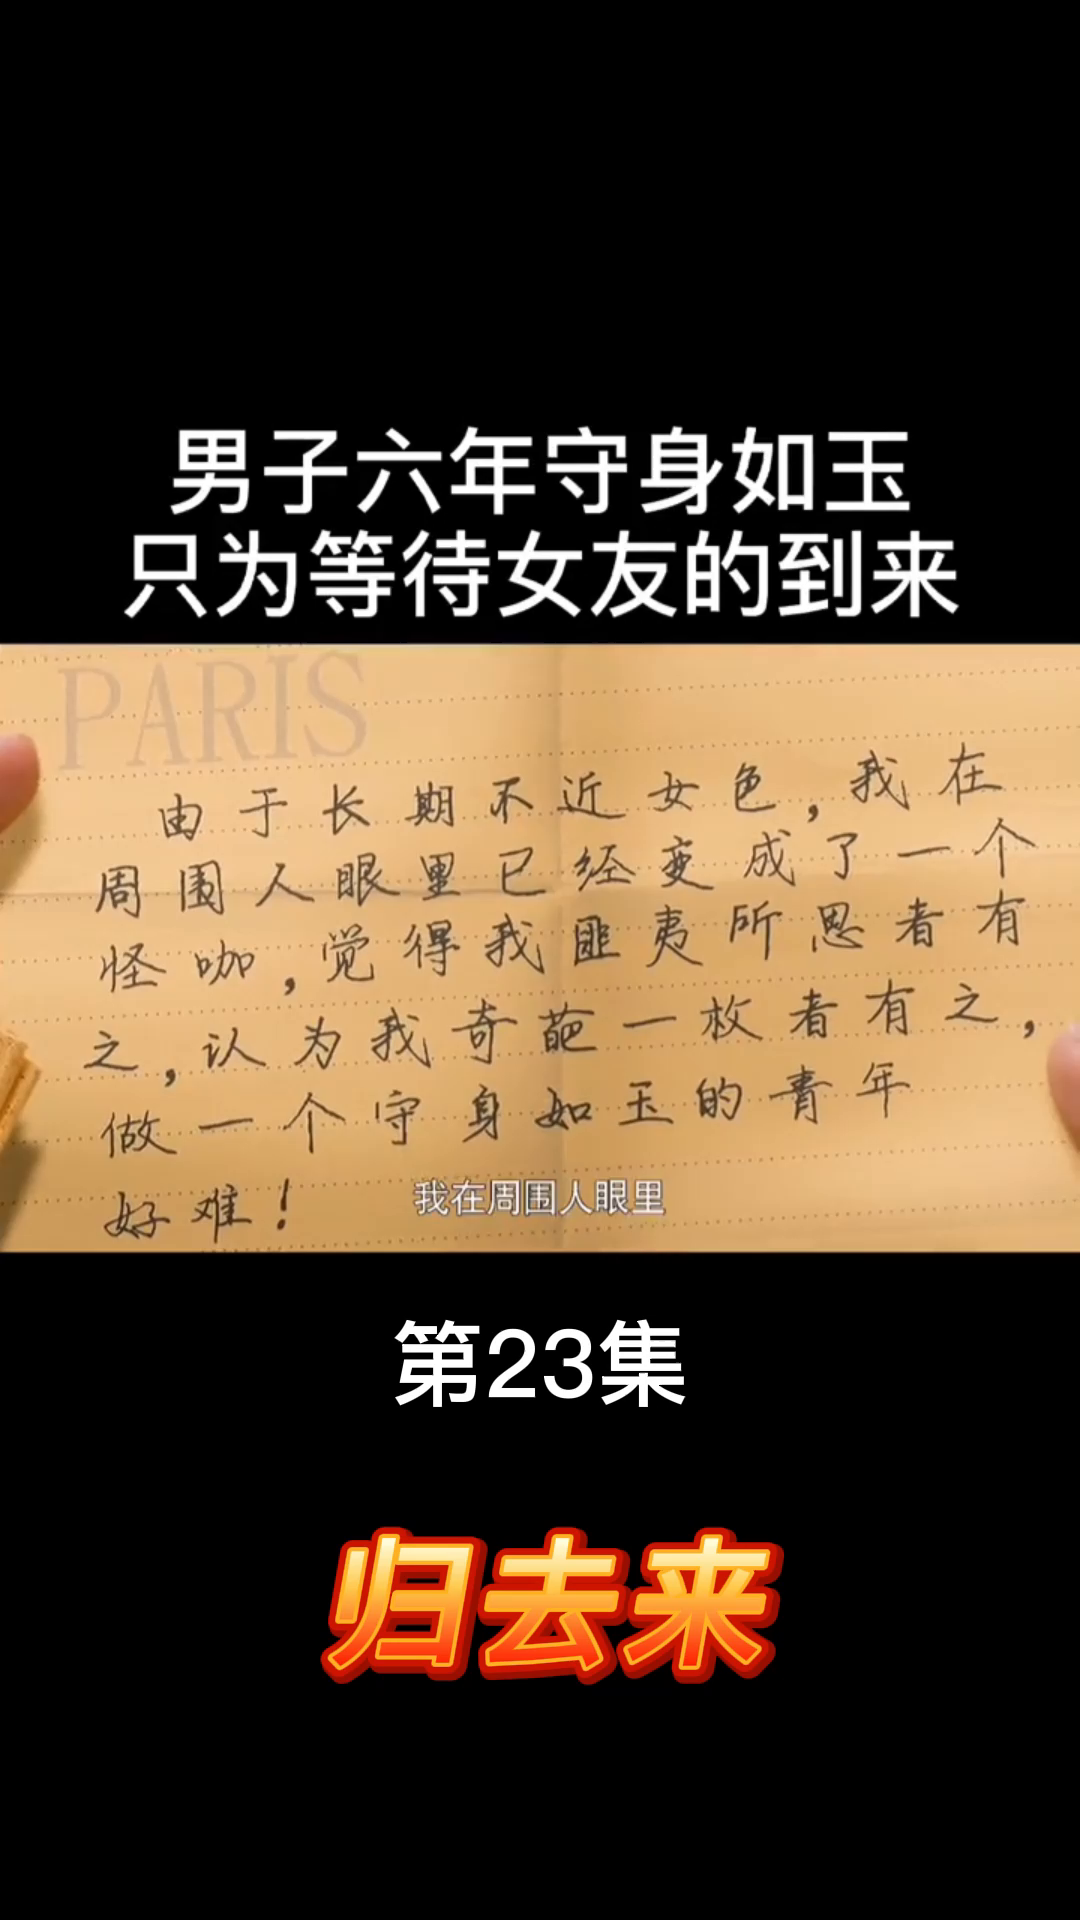 男子六年守身如玉
只为等待女友的到来
PARIS
由于长期不近女色,我在
周围人眼里已经变成了一个
怪咖,觉得我匪夷所思者有
之,认为我奇葩一枚者有之,
做一个守身如玉的青年
好难!
我在周围人眼里
第23集
归去来